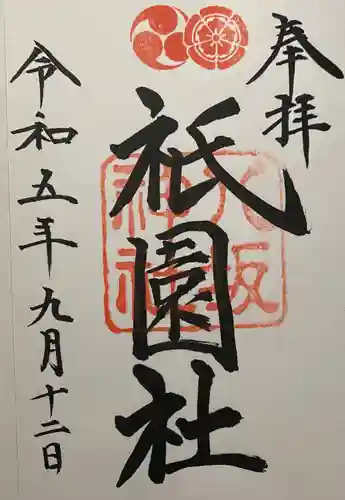 奉拝
祇園社
八坂
神社
令和五年九月十二日